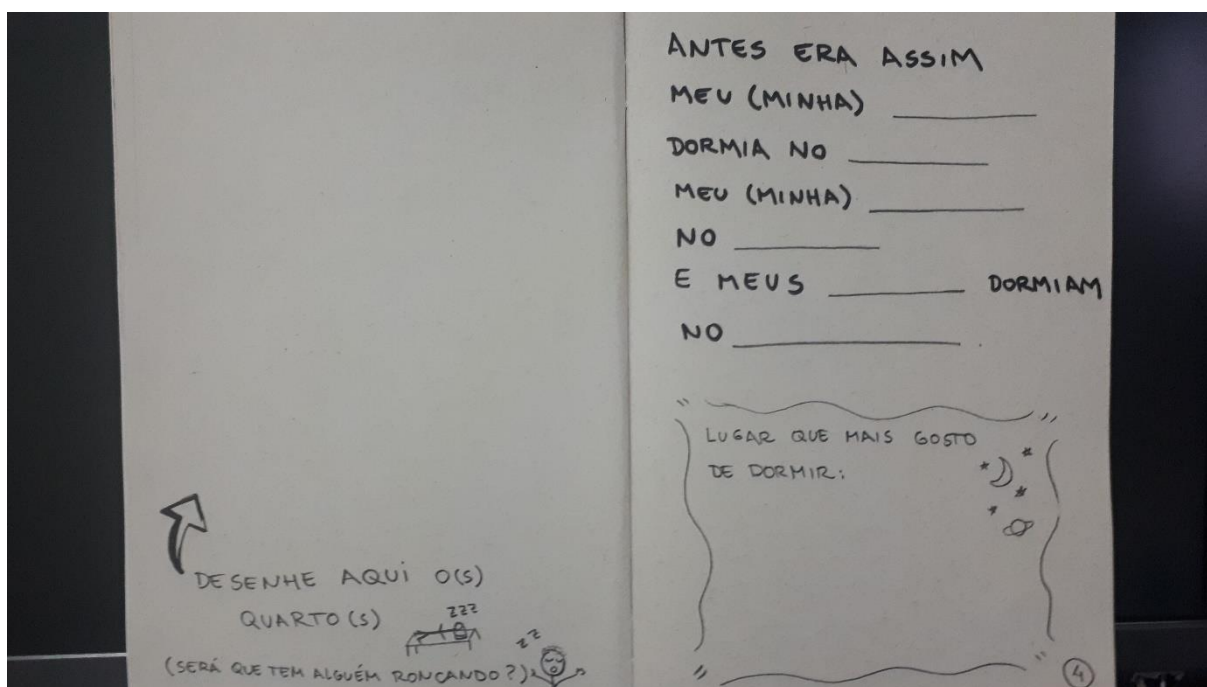 DESENHE AQUI O(S)
QUARTO(S)
ZZZ
ZZ
(SERÁ QUE TEM ALGUÉM RONCANDO?)
ANTES ERA ASSIM
MEU (MINHA) ________
DORMIA NO ________
MEU (MINHA) ________
NO ________
E MEUS ________ DORMIAM
NO ____________.
LUGAR QUE MAIS GOSTO
DE DORMIR:
4